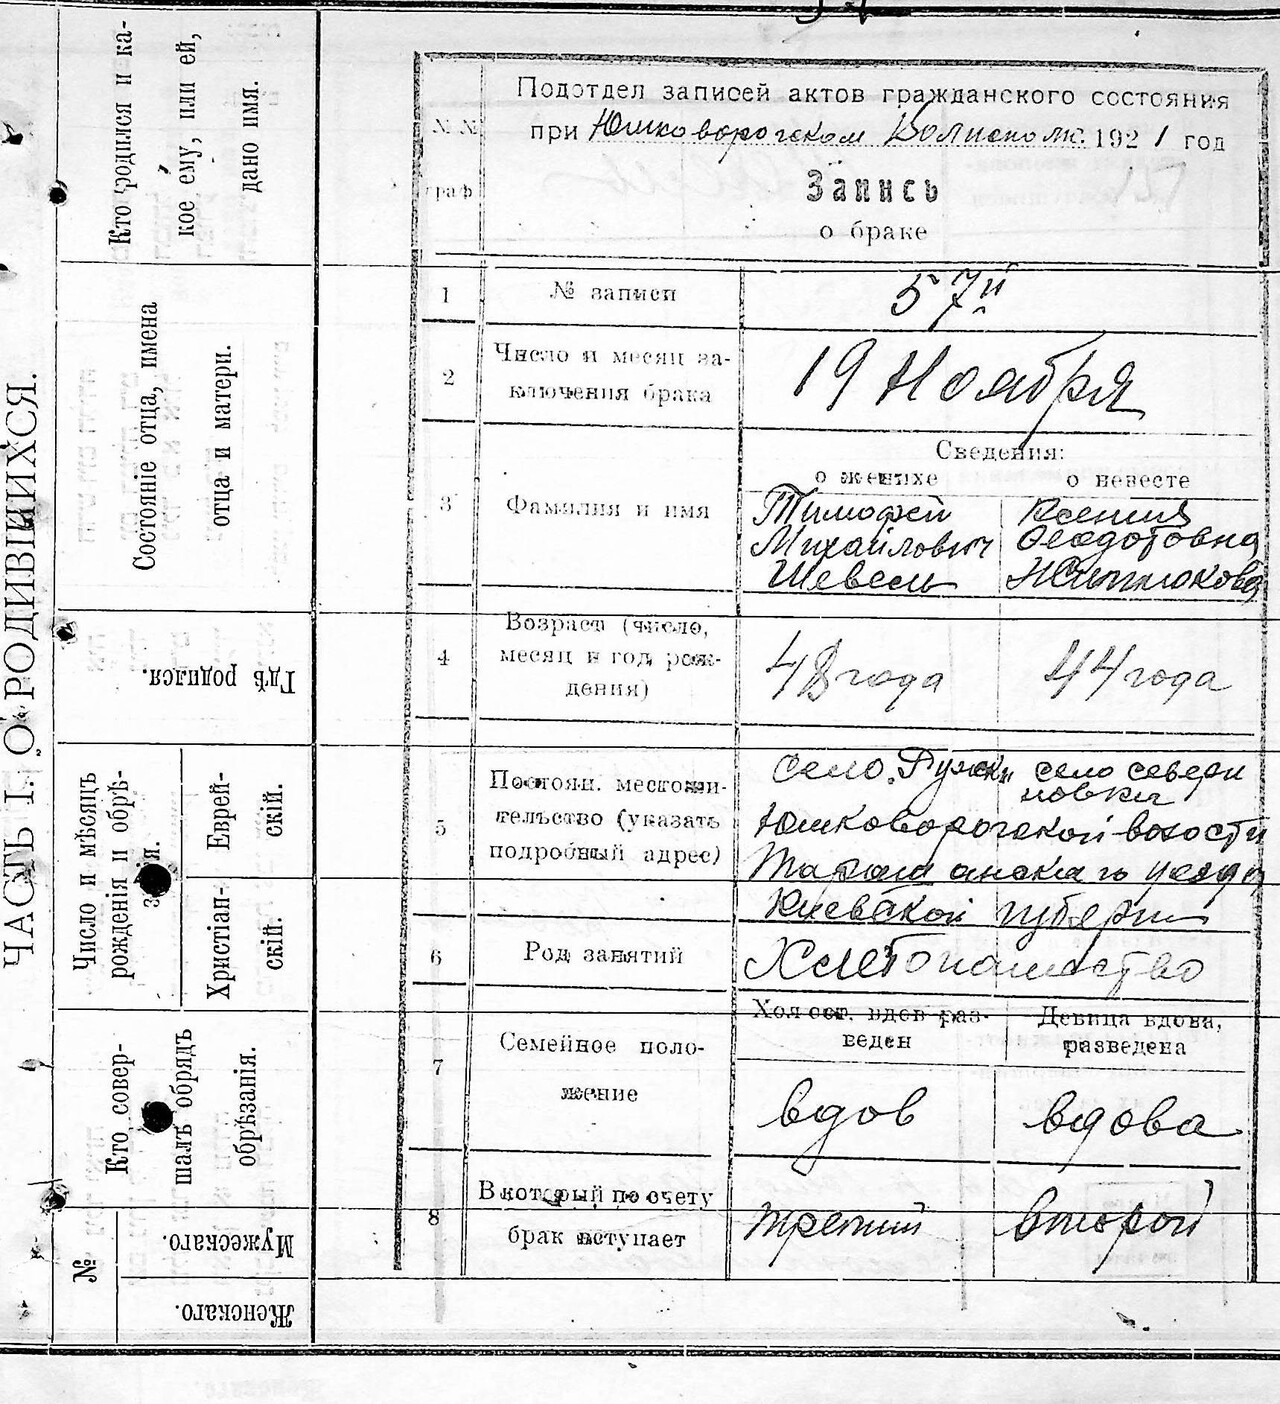 ЧАСТЬ I. О РОДИВШИХСЯ.
Кто родился и ка-
кое ему, или ей,
дано имя.
Состояніе отца, имена
отца и матери.
Гдѣ родился.
Число и мѣсяцъ
рожденія и обрѣ-
занія.
Еврей-
скій.
Христіан-
скій.
Кто совер-
шалъ обрядъ
обрѣзанія.
№
Мужескаго.
Женскаго.
№ №
граф
Подотдел записей актов гражданского состояния
при Юшковорогском Волисполк. 1921 год
Запись
о браке
1 № записи 57й
2 Число и месяц за-
ключения брака 19 Ноября
Сведения:
о женихе о невесте
3 Фамилия и имя
Тимофей Ксения
Михайлович Феодотовна
Шевель
4 Возраст (число,
месяц и год рож-
дения) 48 года 44 года
5 Постоян. местожи-
тельство (указать
подробный адрес)
село Ружки село севери
новки
Юшковорогской волости
Таращанскаго уезда
Киевской губернии
6 Род занятий Хлебопашество
7 Семейное поло-
жение
Холост. вдов раз-
веден
Девица вдова,
разведена
вдов вдова
8 В который по счету
брак вступает третий второй